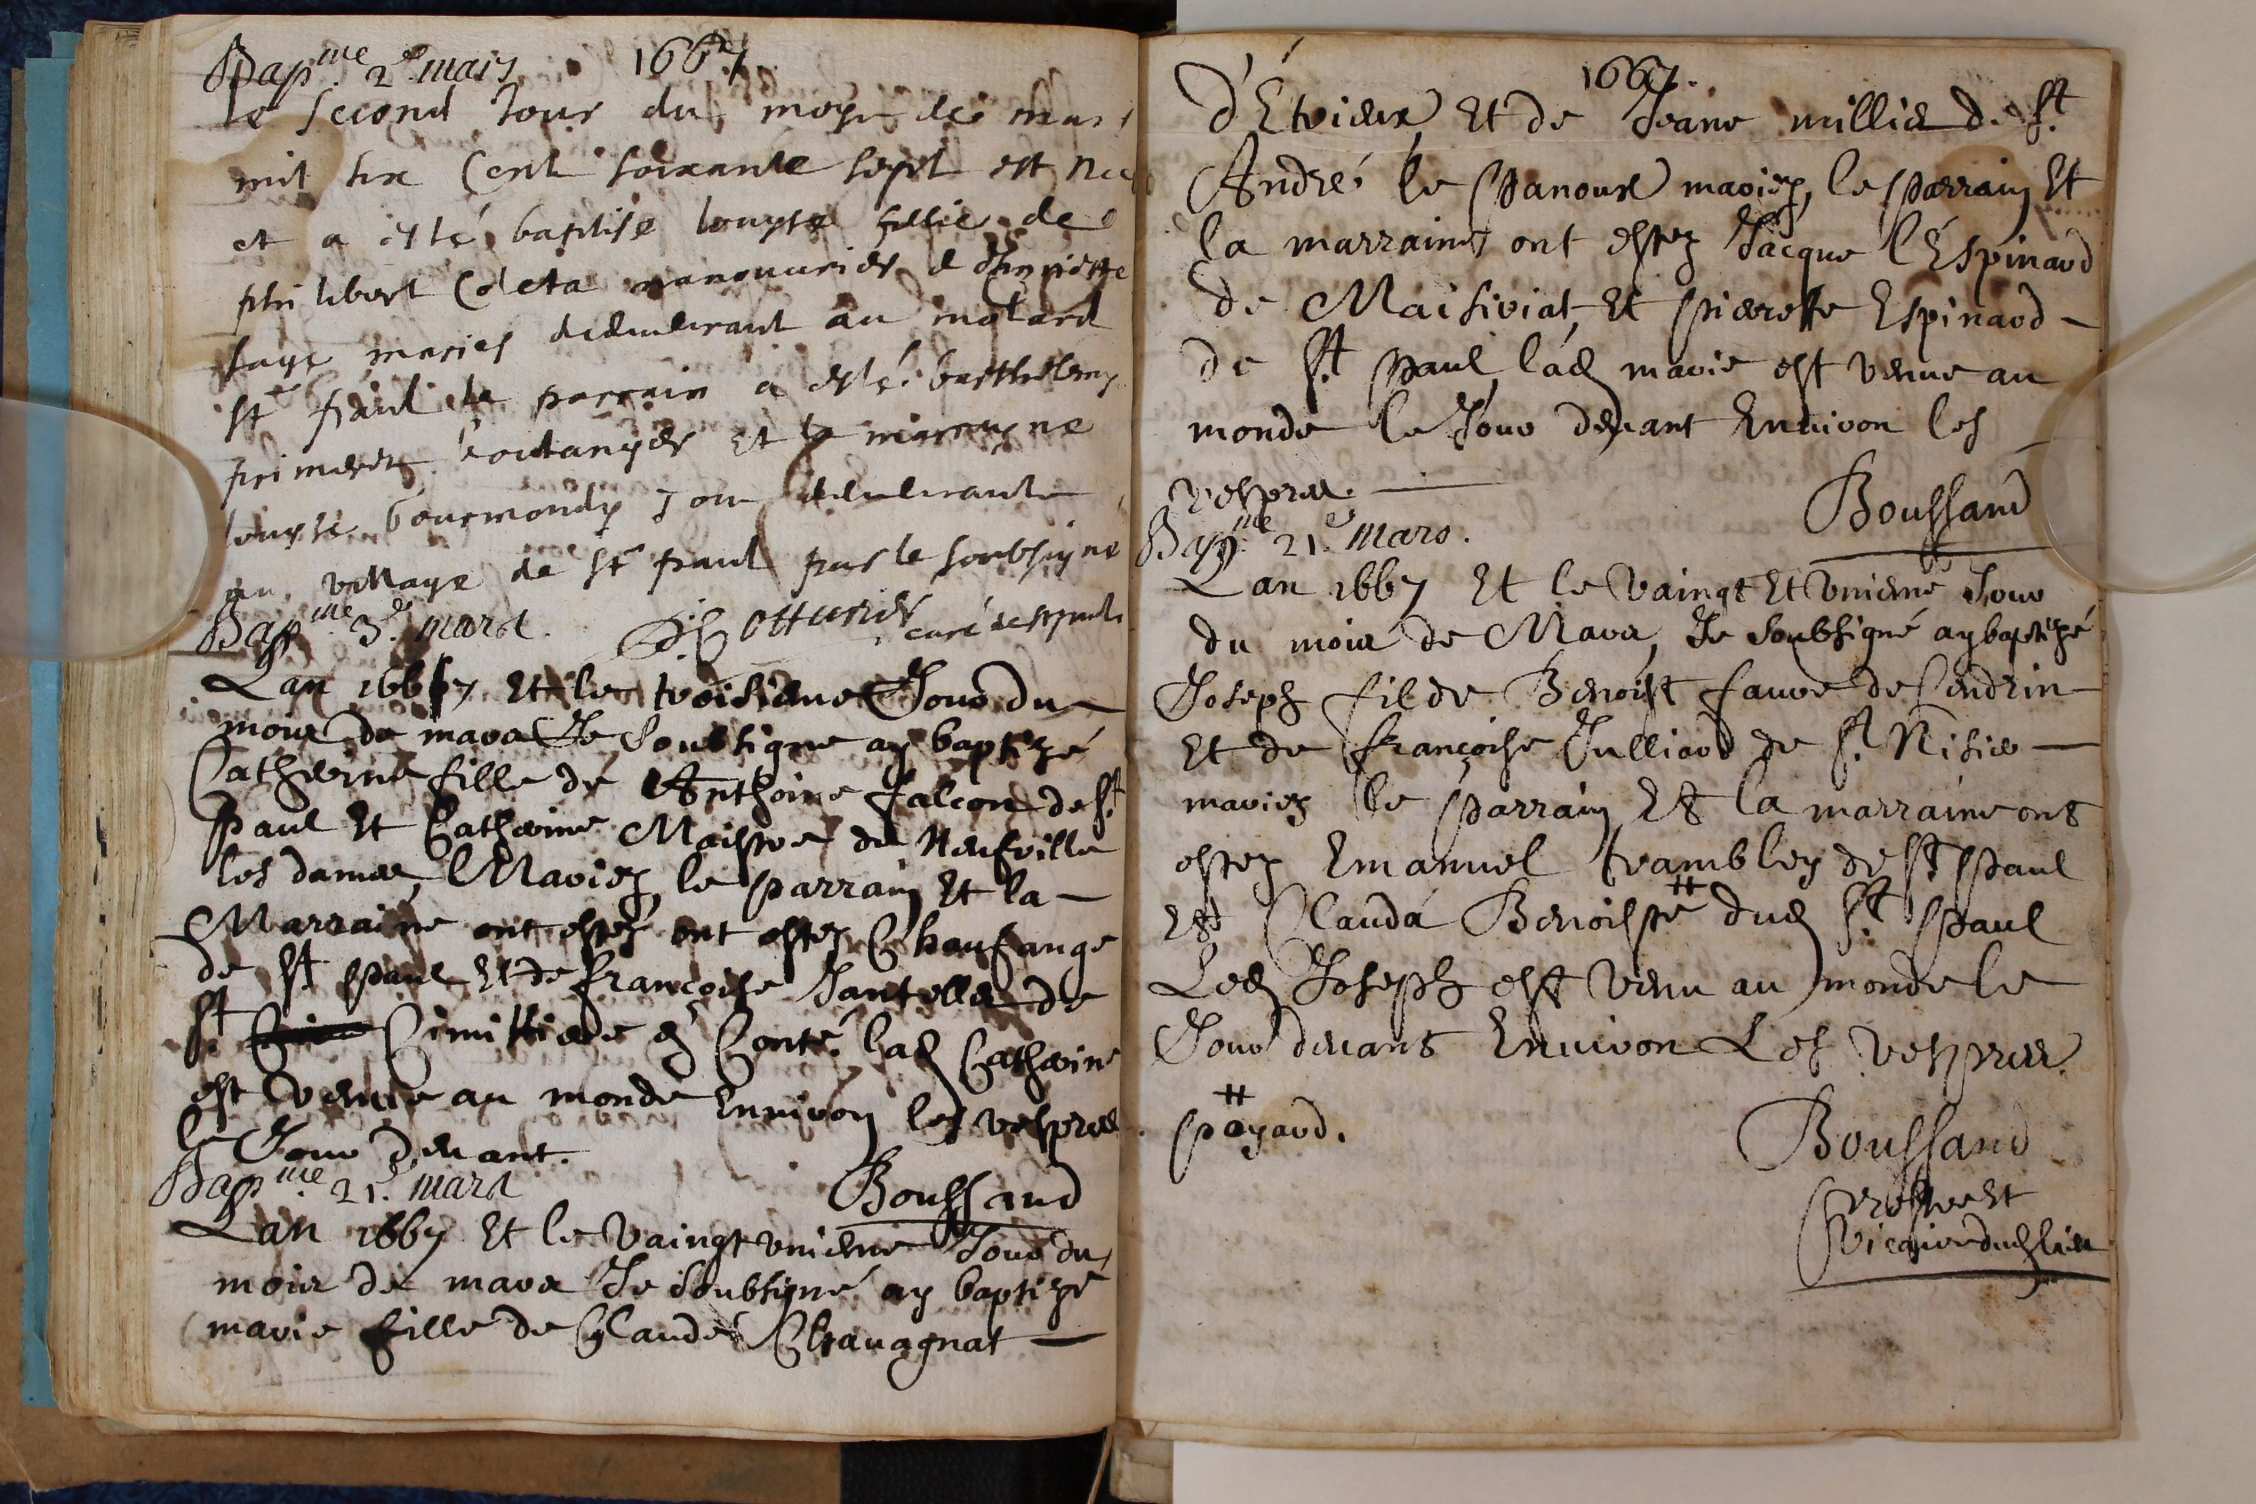 Bap.me 2e mars 1667
le second Jour du moys de mars
mil six Cent soixante sept est née
et a esté baptise louyse fillie de
philibert Coleta manouurier e d'Anpiette
sage mariés demeurant au motard
St paul le parrain a esté barthelemy
primeret boulanger Et la marrayne
louyse bourmondy Jou demeurante
au village de St paul par le soubsigné
Cotturier curé de St paul
Bap.me 3e mars.
Lan 1667 Et le troisieme Jour du
mois de mars Je Soubsigne ay baptizé
Catherine fille de Anthoine falcon de St.
Paul Et Catherine Maistre de Neufville
les dames, Mariez, le parrain Et la
Marraine ont estez ont estez Chanfange
de St Paul Et de françoise Jantelle de
St. Cimittiere en Conté. lad Catherine
est venue au monde Enuiron les vespres
le Jour deuant.
Boussand
Bap.me 21e mars
Lan 1667 Et le Vaingt vnieme Jour du
mois de mars Je Soubsigné ay baptizé
marie fille de Claude Chauagnat
1667.
d'Étrieux Et de Jeane millier de St.
André le Panoux mariez, le parrain Et
la marraine ont estez Jacque l'Espinard
de Maisiriat, Et pierette Espinard
de St. Paul, lad marie est venue au
monde le Jour deuant Enuiron les
vespres.
Boussand
Bap.me 21e mars.
Lan 1667 Et le Vaingt Et Vnieme Jour
du mois de Mars, Je Soubsigné ay baptizé
Joseph fil de Benoist faure de Cendrin
Et de françoise Julliard de St. Nisier
mariez le parrain Et la marraine ont
estez Emanuel trambley de St Paul
Et Clauda Benoiste # dud St. Paul
Led Joseph est venu au monde le
Jour deuant Enuiron Les vespres.
# poyard.
Boussand
prestre Et
vicaire dud lieu